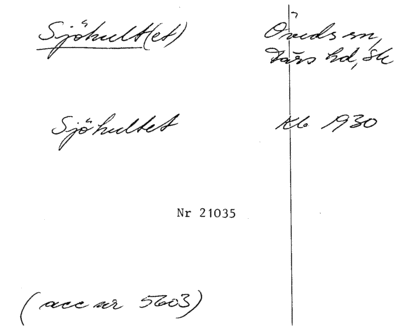 Sjöhult(et)
Öveds sn,
Färs hd, Sk
Sjöhultet
Kb 1930
Nr 21035
(acc nr 5603)